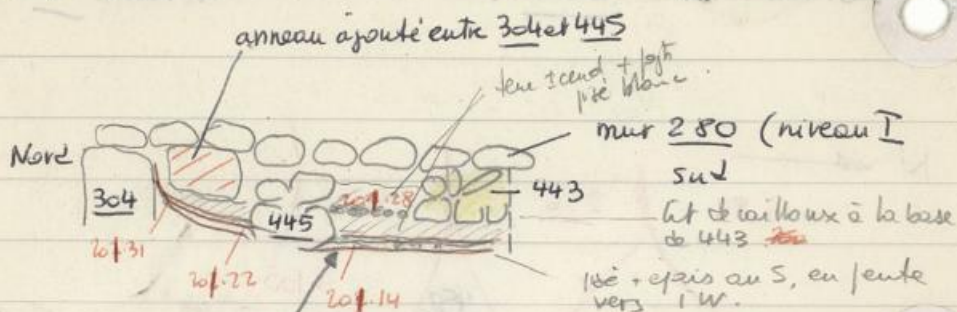 anneau ajouté entre 304 et 445
terre ± cend + fgts
pisé blanc
mur 280 (niveau I
Nord
sud
304
445
201.28
443
lit de cailloux à la base
de 443
201.31
201.22
201.14
pisé + épais au S, en pente
vers l'W.